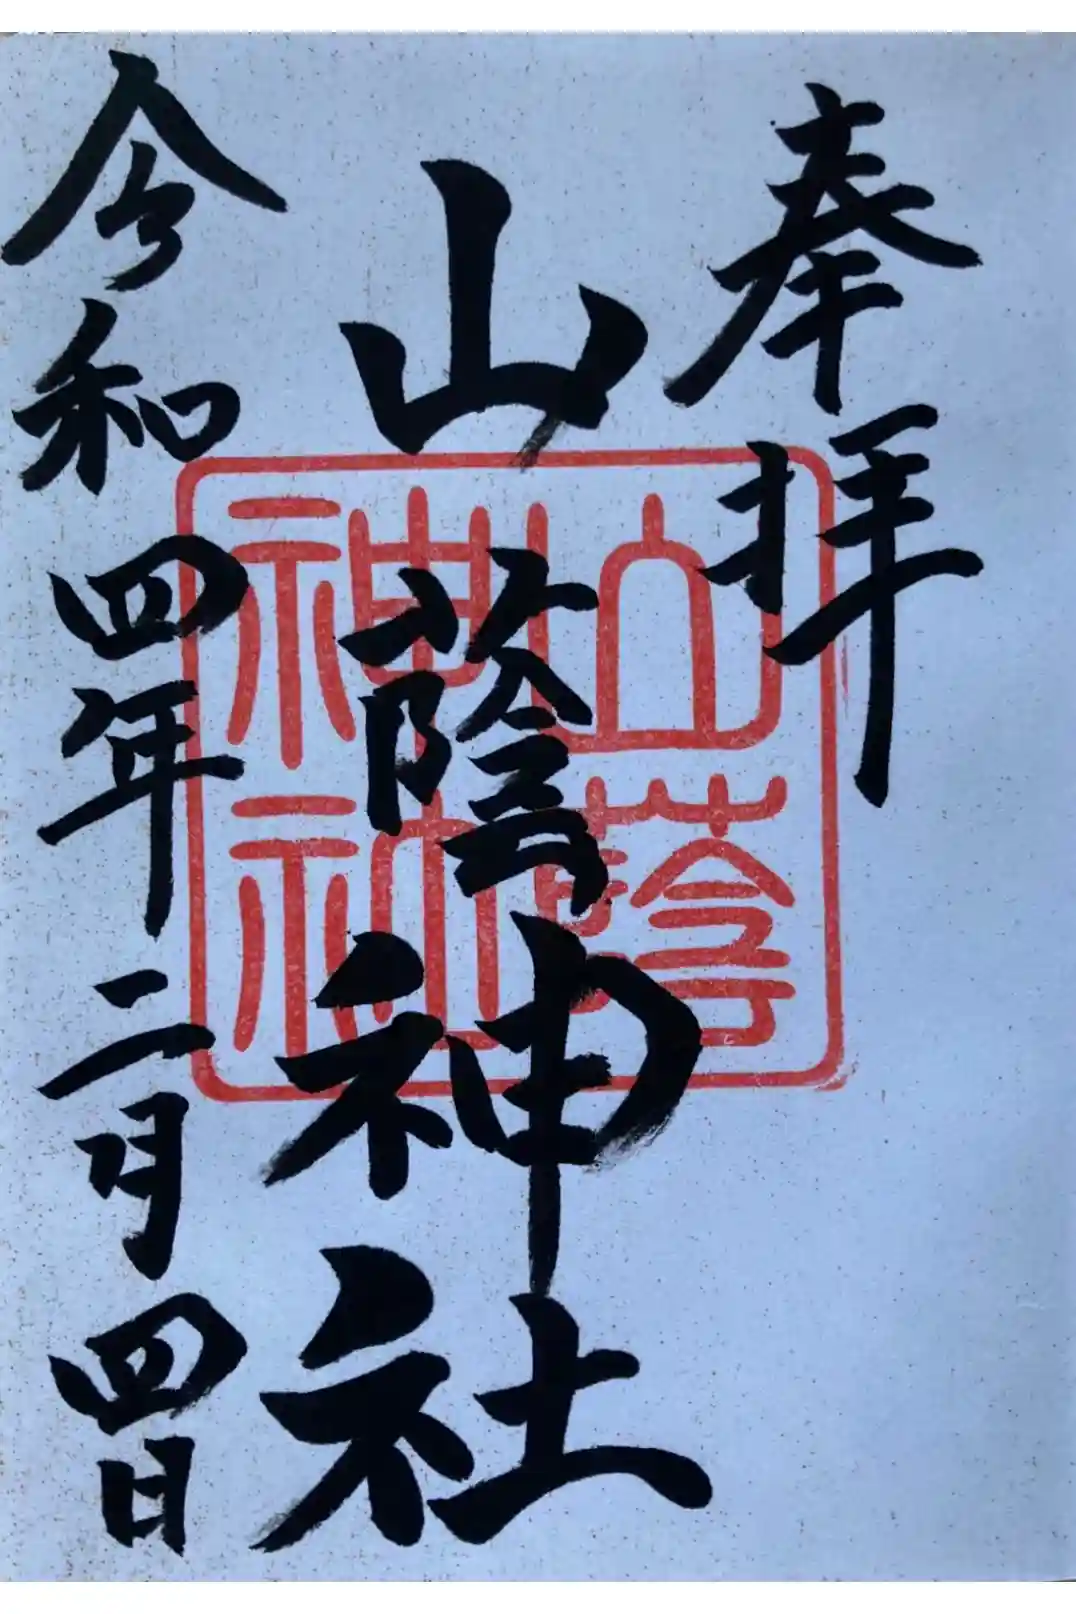 奉拝
山蔭神社
山蔭
神社
令和四年二月四日